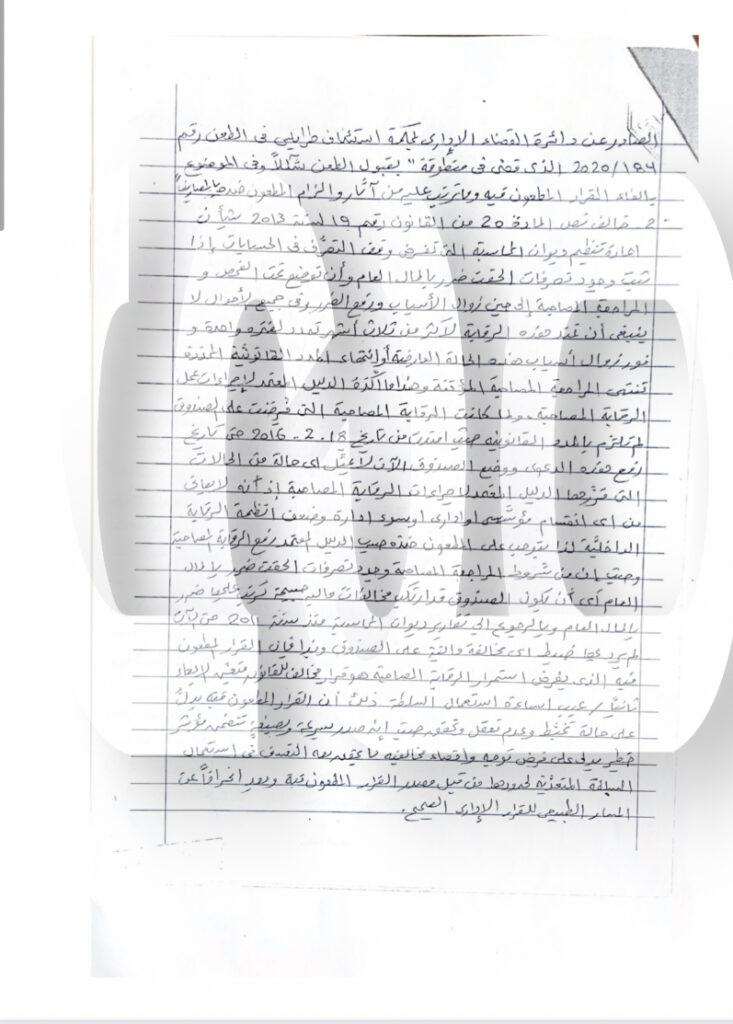 الصادر عن دائرة القضاء الإدارى لمحكمة استئناف طرابلس فى الطعن رقم
184/2020 الذى قضى فى منطوقة " بقبول الطعن شكلاً وفى الموضوع
بالغاء القرار المطعون فيه وماترتب عليه من آثار والزام المطعون ضده بالمصاريف"
2 - خالف نص المادة 20 من القانون رقم 19 لسنة 2013 بشأن
اعادة تنظيم ديوان المحاسبة التى تفرض وقف التصرف فى الحسابات إذا
ثبت وجود تصرفات الحقت ضرر بالمال العام وأن توضع تحت الفحص و
المراجعة المصاحبة إلى حين زوال الأسباب ورفع الضرر وفى جميع الأحوال لا
ينبغى أن تمتد هذه الرقابة لأكثر من ثلاث أشهر تمدد لفترة واحدة و
فور زوال أسباب هذه الحالة العارضة أو إنتهاء المدد القانونية المحددة
تنتهى المراجعة المصاحبة المؤقتة وهذا ما أكدة الدليل المعتمد لإجراءات عمل
الرقابة المصاحبة ولما كانت الرقابة المصاحبة التى فرضت على صندوق
لم تلتزم بالمدد القانونية حيث امتدت من تاريخ 18 . 2 - 2016 حتى تاريخ
رفع هذه الدعوى ووضع الصندوق الآن لا يمثل اى حالة من الحالات
التى قررها الدليل المعتمد لإجراءات الرقابة المصاحبة إذ أنه لا يعانى
من اى انقسام مؤسسى او ادارى او سوء ادارة وضعف انظمة الرقابة
الداخلية لذا يتوجب على المطعون ضده حسب الدليل المعتمد رفع الرقابة المصاحبة
وحيث ان من شروط المراجعة المصاحبة وجود تصرفات الحقت ضرر بالمال
العام أى أن يكون الصندوق قد ارتكب مخالفات مالية جسيمة ترتب عليها ضرر
بالمال العام وبالرجوع الى تقارير ديوان المحاسبة منذ سنة 2011 حتى الآن
لم يرد بها ضبط اى مخالفة مالية على الصندوق وبذا فإن القرار المطعون
فيه الذى يفرض استمرار الرقابة المصاحبة هو قرار مخالف للقانون متعين الإلغاء
ثانياً / عيب اساءة استعمال السلطة ذلك أن القرار المطعون فيه يدل
على حالة تخبط وعدم تعقل وتحقق حيث إنه صدر بسرعة وبصيغة تتضمن مؤشر
خطير يدل على فرض توجه واقصاء مخالفيه بما يعتد به التعسف فى استعمال
السلطة المتعدية لحدودها من قبل مصدر القرار المطعون فيه ويعد انحرافاً عن
المسار الطبيعى للقرار الإدارى الصحيح .